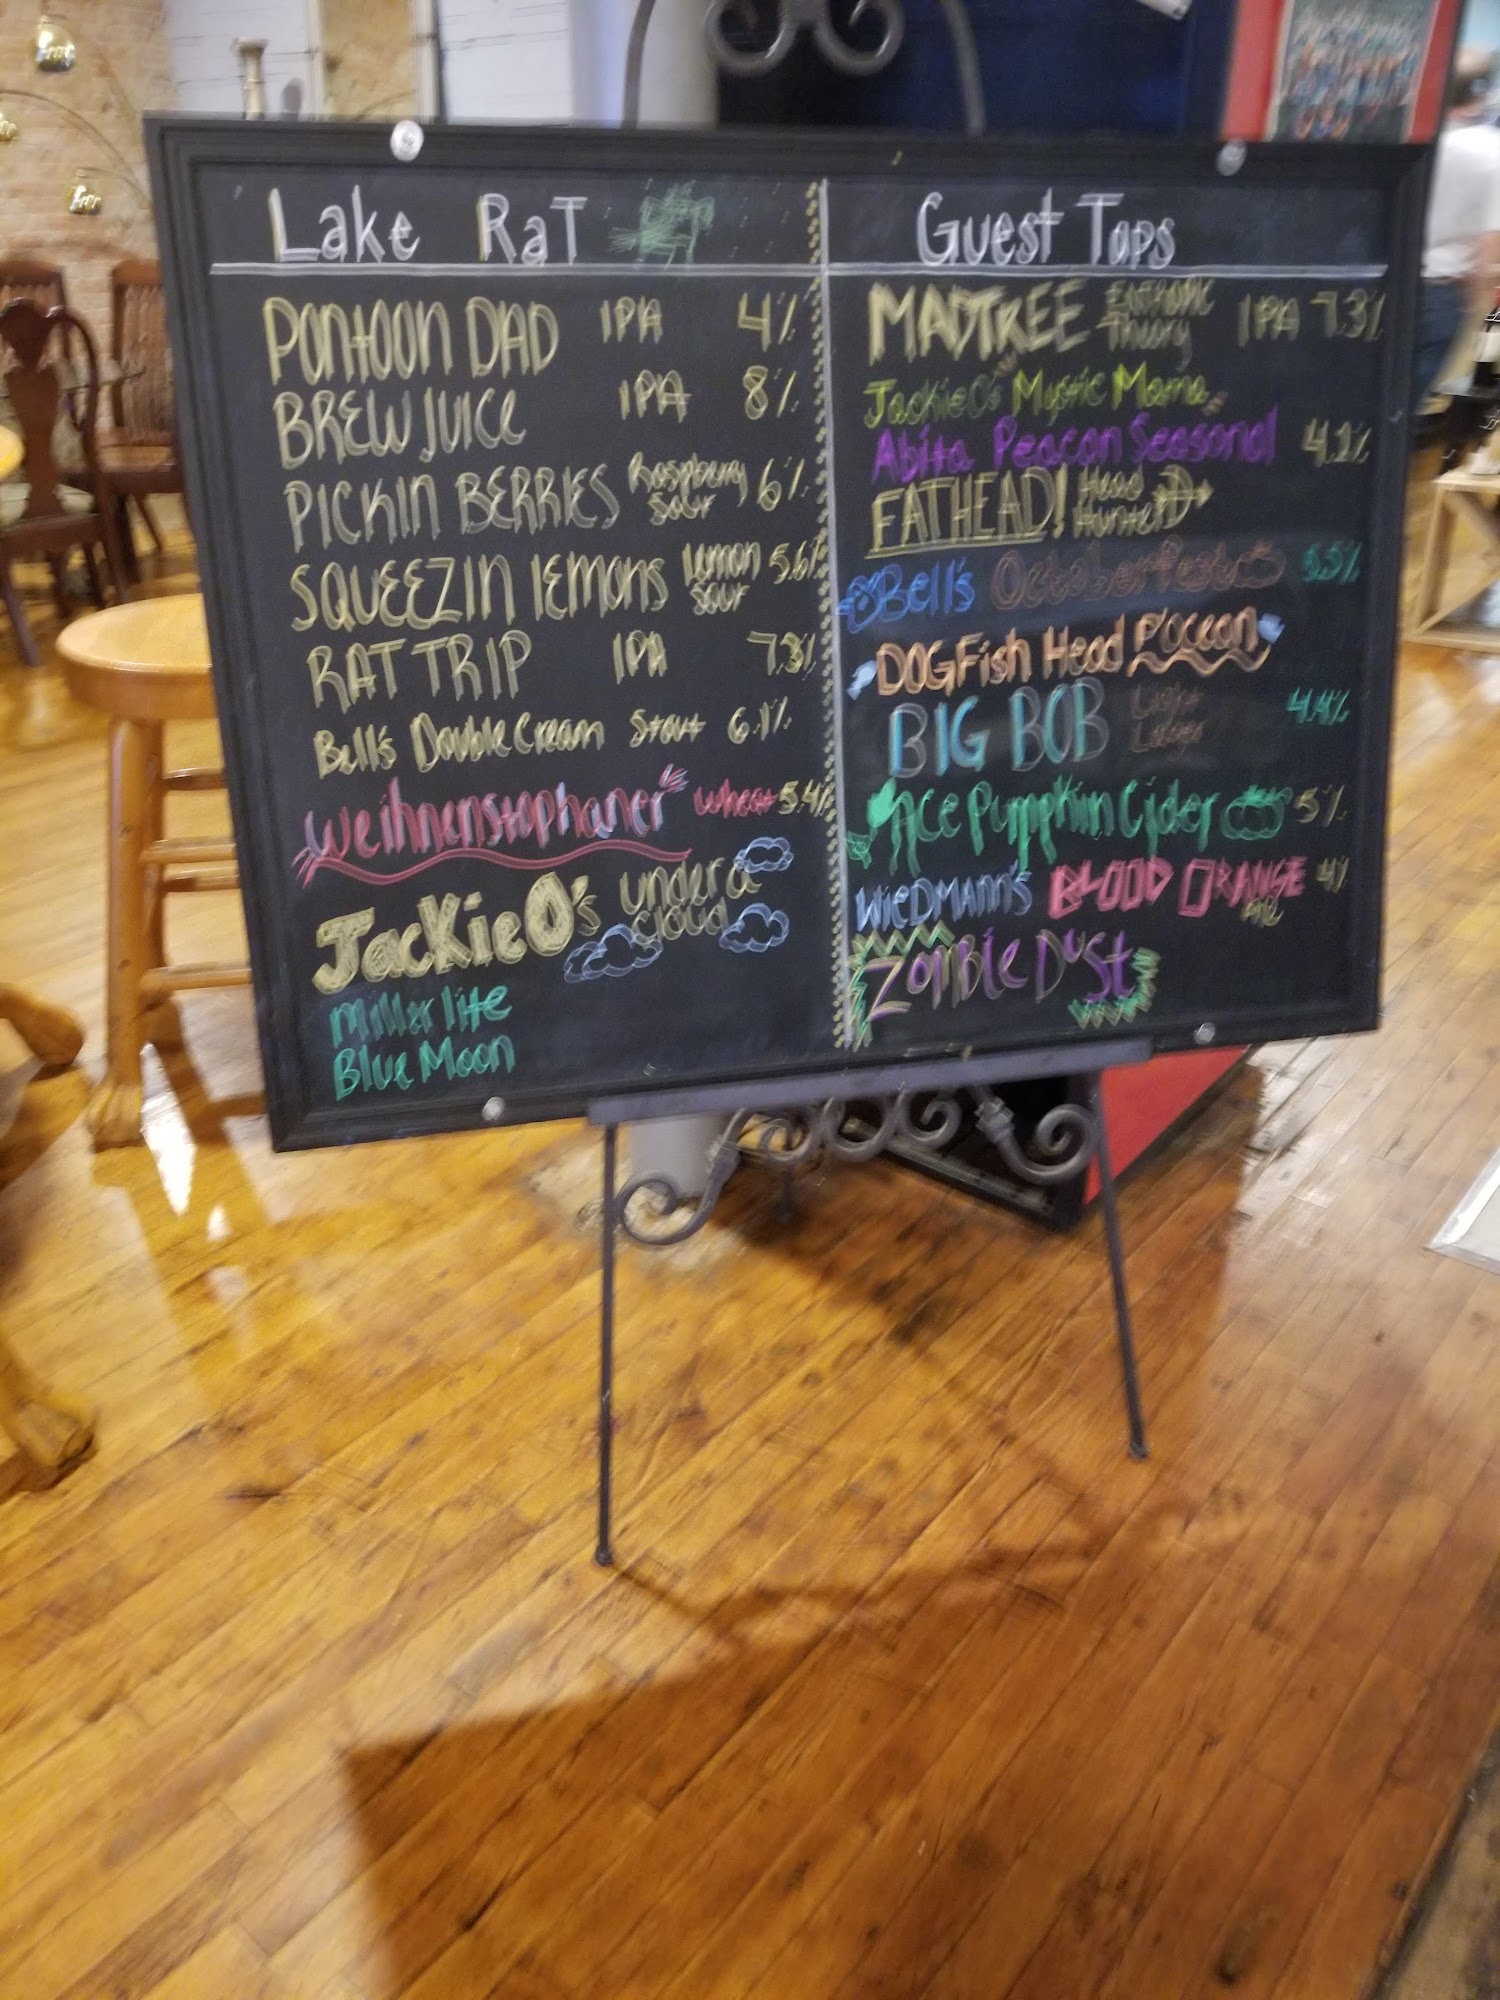 Lake RaT
PONtOON DAD IPA 4%
BREW JUICE IPA 8%
PICKIN BERRIES Raspberry Sour 6%
SQUEEZIN lEMONS Lemon Sour 5.6%
RAT TRIP IPA 7.3%
Bell's Double Cream Stout 6.1%
Weihnenstaphaner Wheat 5.4%
JacKie O's under a cloud
Miller lite
Blue Moon
Guest Taps
MADTREE Entropic Theory IPA 7.3%
Jackie O's Mystic Mama
Abita Peacan Seasonal 4.1%
FATHEAD! Head Hunter
Bell's Octoberfest 5.5%
DOGFish Head P'Ocean
BIG BOB Light Lager 4.4%
Ace Pumpkin Cider 5%
WIEDMANN's BLOOD ORANGE Ale 4%
ZOMBIE DuSt